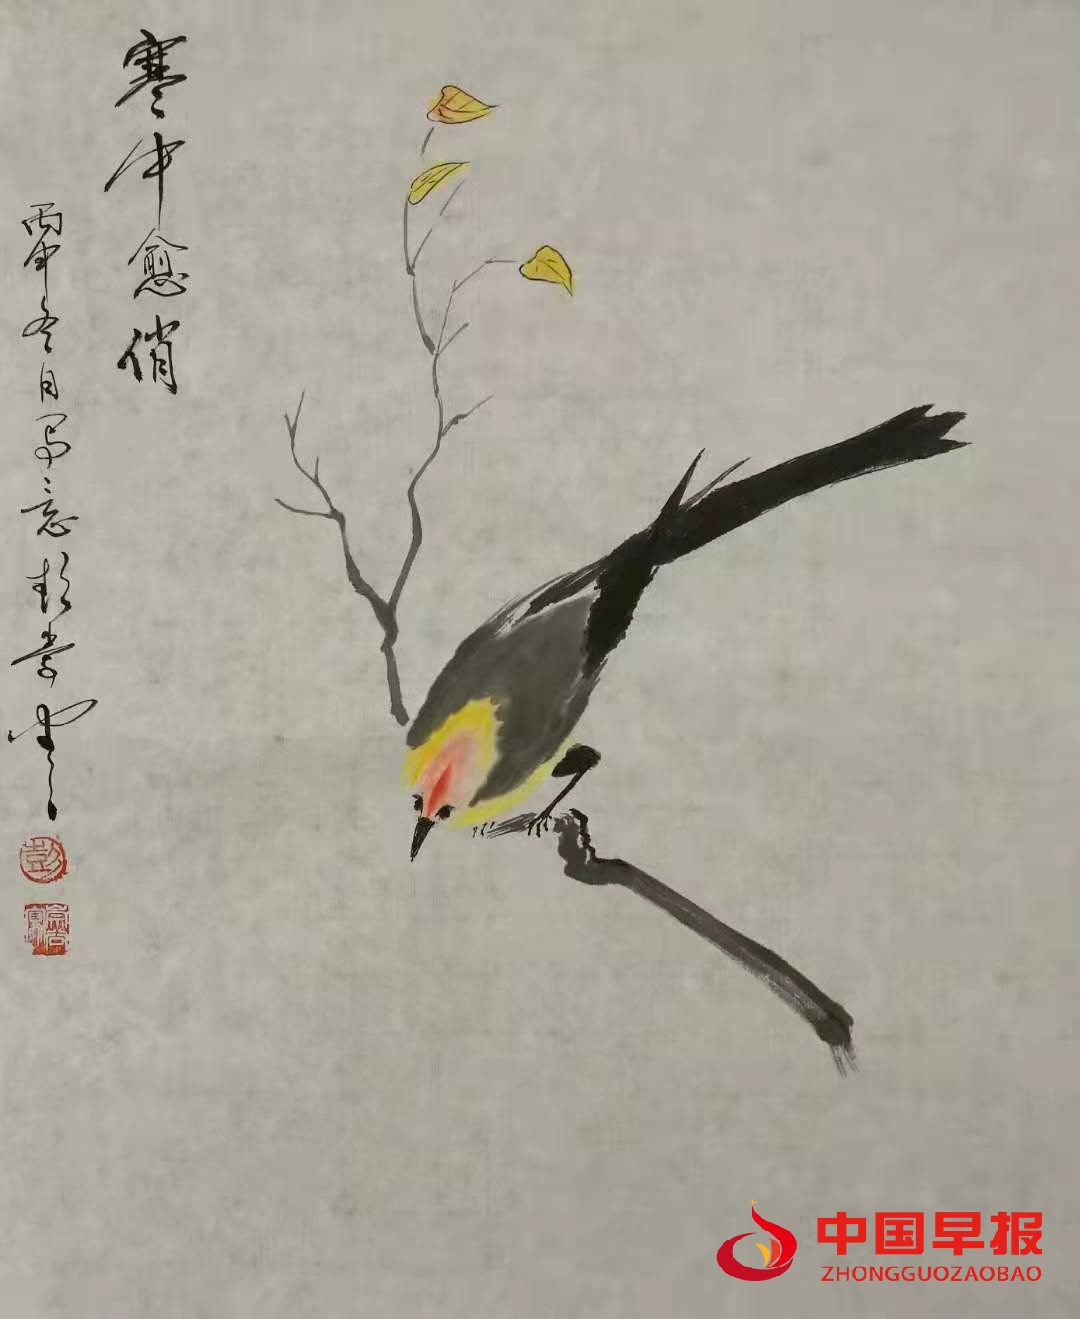 寒中愈俏
丙申冬月写意彭常云
彭
中国早报
ZHONGGUOZAOBAO